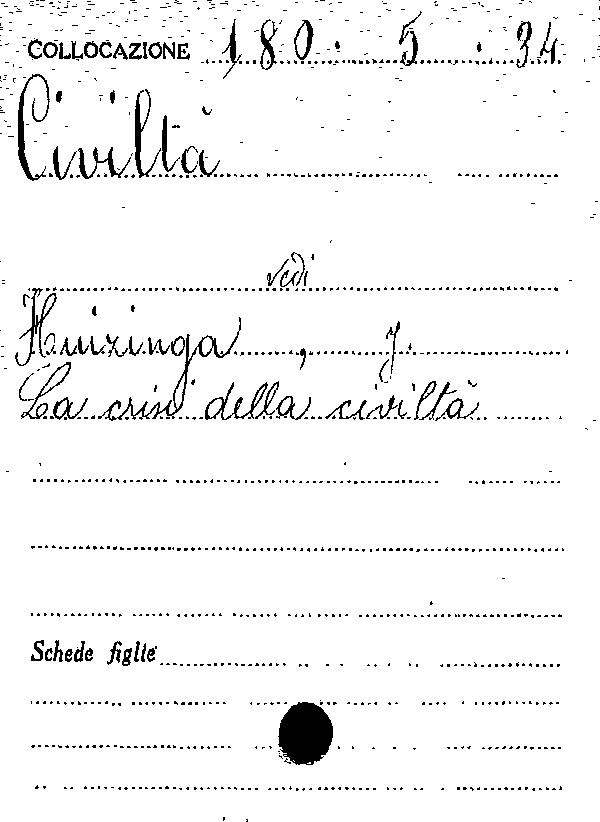 COLLOCAZIONE 180. 5 . 34
Civiltà
vedi
Huizinga, J.
La crisi della civiltà
Schede figlie